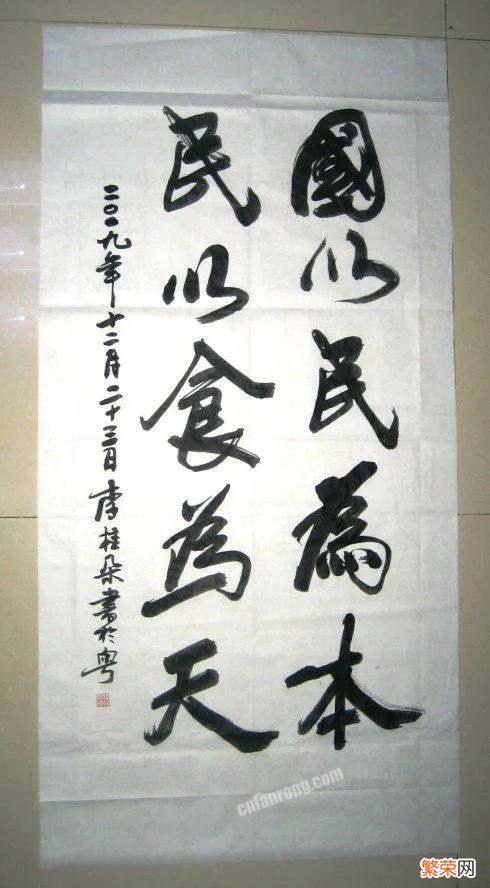 國以民為本
民以食為天
二〇一九年十二月二十三日李桂朵書於粵
cnfanrong.com
繁荣网